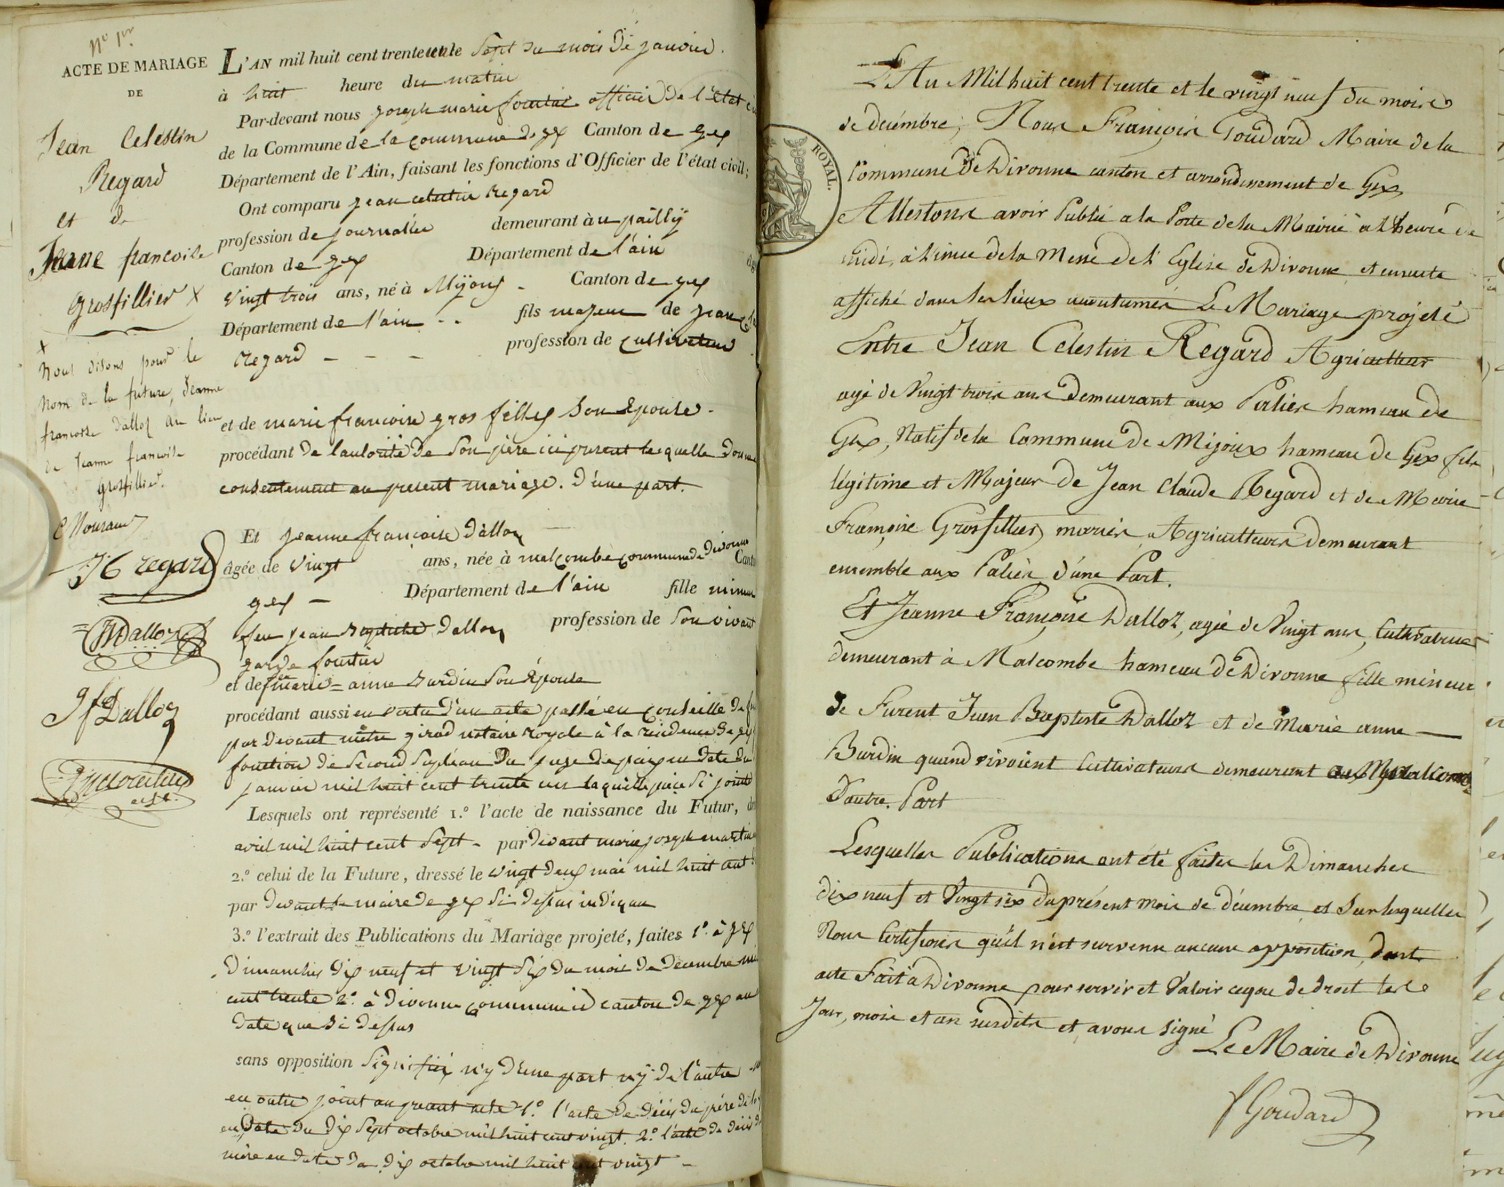 N° 1er
ACTE DE MARIAGE
DE
Jean Celestin
Regard
et de
Jeanne francoise
Grosfillier X
X
Nous disons pour le
Nom de la future, Jeanne
francoise dalloz au lieu
de Jeanne francoise
grosfillier
JC regard
JM Dalloz
J f Dalloz
L'AN mil huit cent trente un le Sept du mois de janvier.
à huit heure du matin
Par-devant nous joseph marie fournier officier de l'état
de la Commune de la commune de gex Canton de gex
Département de l'Ain, faisant les fonctions d'Officier de l'état civil;
Ont comparu jean celestin Regard
profession de journallier demeurant à u pailly
Canton de gex Département de l'ain
vingt trois ans, né à Mijoux - Canton de gex
Département de l'ain - - fils majeur de jean
Regard - - - profession de cultivateur
et de marie francoise gros filley son Epouse -
procédant de l'autorité de Son père ici présent lequelle donne
consentement au present mariage. d'une part.
Et jeanne françoise dalloz
âgée de vingt ans, née à malcombe commune de divonne Canto
gex - Département de l'ain fille mineu
feu jean Baptiste dalloz profession de Son vivant
garde
et de marie = anne Burdin Son Epouse
procédant aussi en vertu d'un acte passé en conseille de
par devant maître girod notaire royale à la résidence de gex
fonction de Second Supléan Du juge de paix en date du
janvier mil huit cent trente un laquelle pièce Si joint
Lesquels ont représenté 1.° l'acte de naissance du Futur,
avril mil huit cent Sept - par devant marie joseph martin
2.° celui de la Future, dressé le vingt deux mai mil huit cent
par devant le maire de gex Si desus indiquer
3.° l'extrait des Publications du Mariage projeté, faites 1.° à gex
Dimanches dix neuf et vingt Six du mois de Décembre mil
cent trente 2.° à divonne commune dudit canton de gex au
date que Si desus
sans opposition Signifiée n'y d'une part n'y de l'autre
en outre joint au present acte 1.° l'acte de décès du père de la
en Date du dix Sept octobre mil huit cent vingt. 2.° l'acte de décès de
mère en date du dix octobre mil huit cent vingt -
ROYAL.
L'An Mil huit cent trente et le vingt neuf du mois
de décembre; Nous François Goudard Maire de la
Commune de Divonne canton et arrondissement de Gex
Attestons avoir Publié a la Porte de la Mairie à l'heure de
midi, à l'issue de la Messe de l'Eglise de Divonne et ensuite
affiché dans les lieux accoutumés Le Mariage projeté
Entre Jean Célestin Regard Agriculteur
agé de Vingt trois ans Demeurant aux Palies hameau de
Gex, Natif de la Commune de Mijoux hameau de Gex fils
légitime et Majeur de Jean Claude Regard et de Marie
Françoise Grosfillier, mariés Agriculteurs demeurant
ensemble aux Paliès, d'une Part.
Et Jeanne Françoise Dalloz, agée de Vingt ans, Cultivatrice
demeurant à Malcombe hameau de Divonne fille mineure
de Furent Jean Baptiste Dalloz et de Marie anne
Burdin quand vivoient Cultivateurs demeurant au Malcombe
D'autre. Part
Lesquelles Publications ont été faites les Dimanches
dix neuf et Vingt six du présent mois de décembre et Sur lesquelles
Nous Certifions qu'il n'est survenu aucune opposition, dont
acte Fait à Divonne pour servir et Valoir ce que de droit les
Jour, mois et an susdits et avons Signé
Le Maire de Divonne
f Goudard